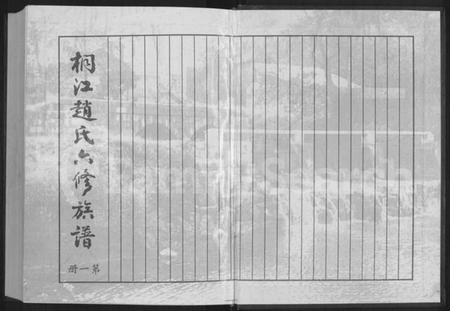 桐江趙氏六修族譜
第一册